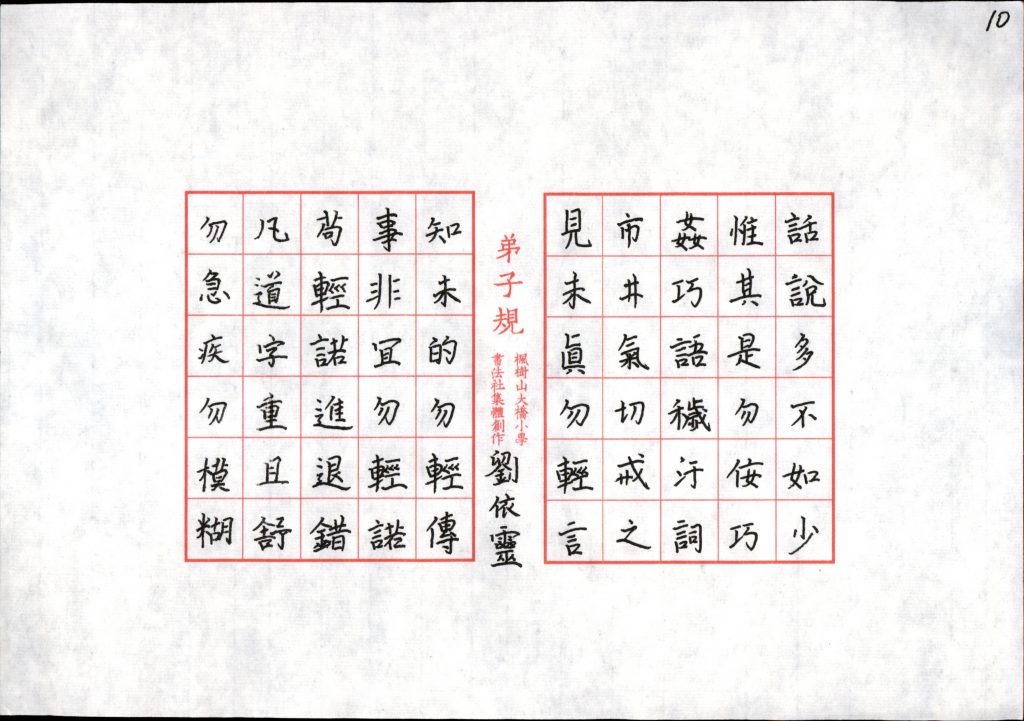 10
話說多不如少
惟其是勿佞巧
姦巧語穢汙詞
市井氣切戒之
見未眞勿輕言
弟子規
楓樹山大橋小學
書法社集體創作
劉依靈
知未的勿輕傳
事非宜勿輕諾
苟輕諾進退錯
凡道字重且舒
勿急疾勿模糊